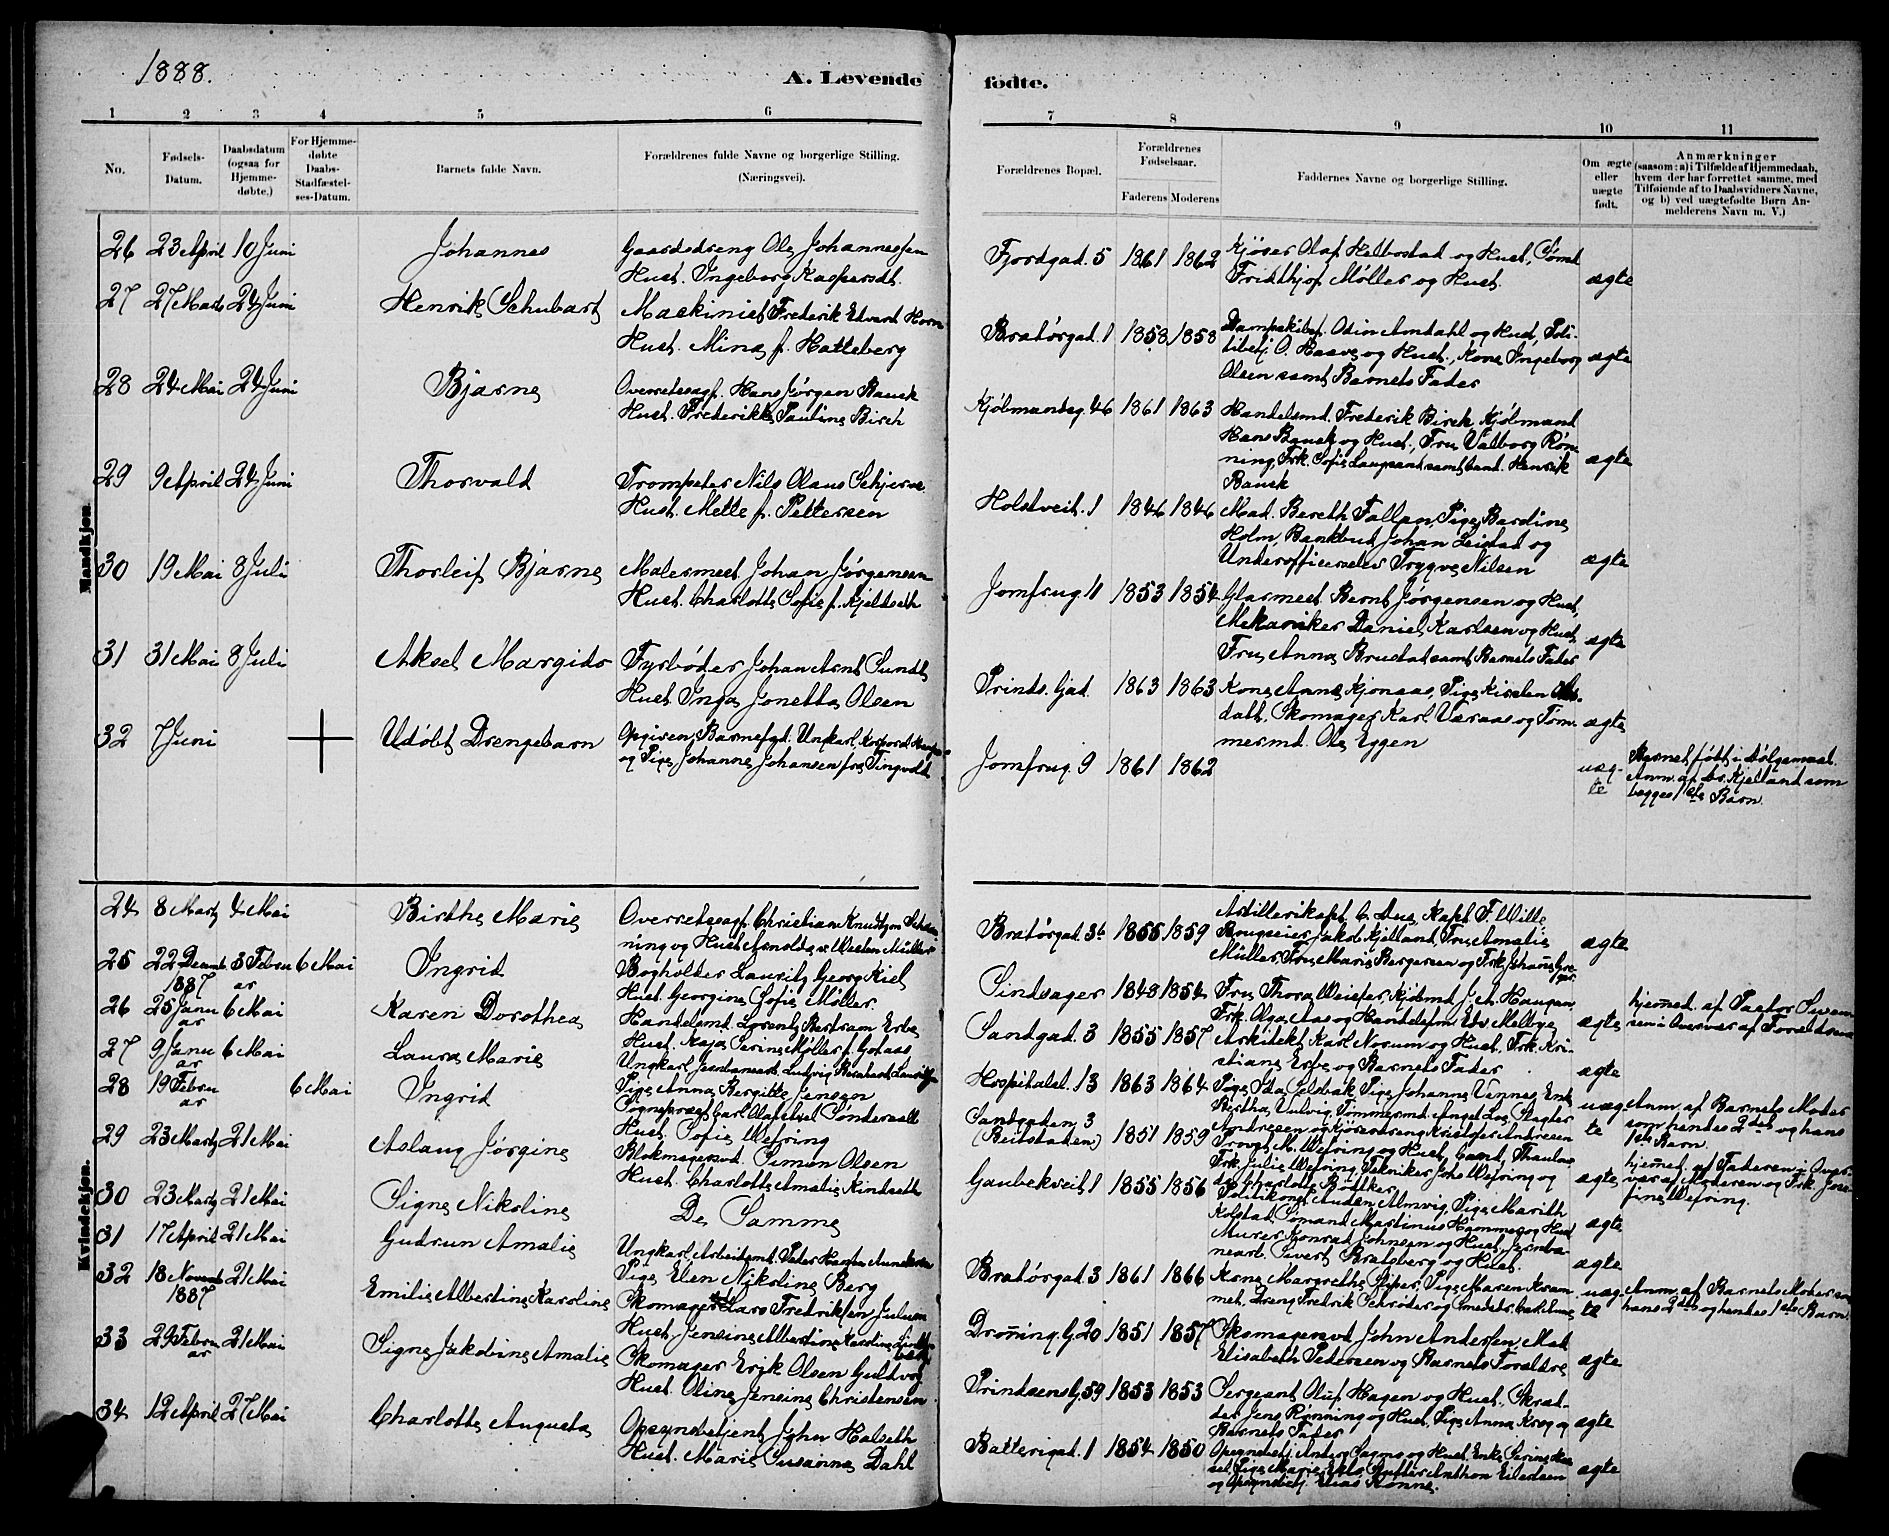 1888.
A. Levende fødte.
1 2 3 4 5 6 7 8 9 10 11
No.
Fødsels-Datum.
Daabsdatum (ogsaa for Hjemme-døbte.)
For Hjemme-døbte Daabs-Stadfæstel-ses-Datum.
Barnets fulde Navn.
Forældrenes fulde Navne og borgerlige Stilling. (Næringsvei).
Forældrenes Bopæl.
Forældrenes Fødselsaar.
Faderens Moderens
Faddernes Navne og borgerlige Stilling.
Om ægte eller uægte født.
Anmærkninger (saasom: a) i Tilfælde af Hjemmedaab, hvem der har forrettet samme, med Tilføiende af to Daabsvidners Navne, og b) ved uægtefødte Børn Anmelderens Navn m. V.)
Mandkjøn.
26 23 April 10 Juni Johannes Gaardsdreng Ole Johannessen
Hust. Ingeborg Kaspersdt.
Fjordgad. 5 1861 1862 Kjøser Olaf Helbostad og Hust,
Fridthjof Møller og Hust. ægte
27 27 Marts 24 Juni Henrik Schubart Maskinist Frederik Edvard Horn
Hust. Mina f. Hatteberg
Bratørgad. 1 1858 1858 Dampskibsf. Odin Amdahl og Hust, Poli-
tibetj. O. Haave og Hust., Kone Ingeborg
Olsen samt Barnets Fader ægte
28 24 Mai 24 Juni Bjarne Overretssagf. Hans Jørgen Bauck
Hust. Frederikke Pauline Birch
Kjølmandsg. 46 1861 1863 Handelsmd. Frederik Birch, Kjølmand
Hans Bauck og Hust., Fru Valborg Røn-
ning, Frk. Sofie samt Cand. Henrik
Bauck ægte
29 9 April 24 Juni Thorvald Trompeter Nils Olaus Schjerve
Hust. Mette f. Pettersen
Holstveit. 1 1846 1846 Mad. Bereth Fallan, Pige Bardine
Holm, Bankbud Johan Leistad og
Underofficerselev Trygve Nilsen ægte
30 19 Mai 8 Juli Thorleif Bjarne Malermest Johan Jørgensen
Hust. Charlotte Sofie f. Kjeldseth
Jomfrug. 11 1853 1854 Glasmest. Bernt Jørgensen og Hust,
Mekaniker Daniel Karlsen og Hust.
Fru Anna Brustad samt Barnets Fader ægte
31 31 Mai 8 Juli Aksel Margido Fyrbøder Johan Arnt Sundt
Hust. Inga Jonetta Olsen
Prinds. Gad. 1863 1863 Kone Anne Kjonaas, Pige
Skomager Karl Væraas og Tøm-
mermd. Ole Eggen ægte
32 7 Juni Udøbt Drengebarn Opgiven Barnefad. Ungkarl
og Pige Johanne Johansen fra Tingvold
Jomfrug. 9 1861 1862 uæg-
te
Barnet født i
Anm. af Kjelland som
begges 1ste Barn.
Kvindekjøn.
24 8 Marts 4 Mai Birthe Marie Overretssagf. Christian Knudtzon
og Hust.
Bratørgad. 3b 1855 1859 Artillerikapt. C. Due, Kapt. F. Witte,
Brugseier Jakob Kjelland, Fru Amalie
Müller, Fru Marie Bergersen og Frk. ægte
25 22 Decemb 1887 3 Februar 6 Mai Ingrid Bogholder Lauritz Georg Kiel
Hust. Georgine Sofie Møller.
Sindsager 1848 1854 Fru Thora Kjøbmd. J. A. Haugan,
Frk. Olga Aas og Handelsfm. Edv. Melbye ægte
hjemed. af Pastor
26 25 Januar 6 Mai Karen Dorothea Handelsmd. Lorentz Bertram Erbe
Hust. Kaja Serine Møller f.
Sandgad. 3 1855 1857 Arkitekt Karl Norum og Hust, Frk. Kri-
stiane Erbe og Barnets Fader ægte
27 9 Januar 6 Mai Laura Marie Ungkarl Ludvig
Pige Anna Bergitte Jensen
Hospitalsl. 13 1863 1864 Pige Ida Pige Johanne Vennes, Enk.
uæg-
te
Anm. af Barnets Moder
som hendes 2det og hans
1ste Barn.
28 19 Februar 6 Mai Ingrid Sognepræst Carl Olaf
Hust. Sofie Wefring
Sandgaden 3
(Beitstaden) 1851 1859 M. Wefring og Hust,
Frk. Julie Wefring, Tekniker Johs Wefring og
Charlotte Bødtker ægte
hjemed. af Faderen i Over-
vær af Moderen og Frk. Jose-
fine Wefring.
29 23 Marts 21 Mai Aslaug Jørgine Blokmagersvd. Simon Olsen
Hust. Charlotte Amalie Rindseth
Gaubekveit. 1 1855 1856 Politikonst. Amdem Almvig, Pige Marith
Kolstad, Sømand Martinus Hammer og Hust ægte
30 23 Marts 21 Mai Signe Nikoline De Samme
Murer Konrad Johnsen og Hust,
Sivert Bratsberg og Hust. ægte
31 17 April 21 Mai Gudrun Amalie Ungkarl Arbeidsmd. Peder
Pige Elen Nikoline Berg
Bratørgad. 3 1861 1866 Kone Margrethe Pige Maren
Dreng Fredrik Schrøder og uæg-
te
Anm. af Barnets Moder som
hans 2det og hendes 1ste Barn
32 18 Novemb 1887 21 Mai Emilie Albertine Karoline Skomager Lars Fredriksen Julum
Hust. Jensine Albertine Karoline
Dronning. G. 20 1851 1857 Skomagersvd. John Andersen, Mad.
Elisabeth Pedersen og Barnets Forældre ægte
33 29 Februar 21 Mai Signe Jakobine Amalie Skomager Erik Olsen Guldvog
Hust. Oline Jensine Christensen
Prindsens G. 59 1853 1853 Sergeant Oluf Hagen og Hust, Skræd-
der Jens Rønning og Hust, Pige Anna Krog og
Barnets Fader ægte
34 12 April 27 Mai Charlotte Augusta Opsynsbetjent John Halseth
Hust. Marie Susanna Dahl
Batterigad. 1 1854 1850 Opsynsbetj. Anders og Hust, Enke
Pige Marie Anthon Eilertsen
og Opsynsbetj. Elias Rønne. ægte